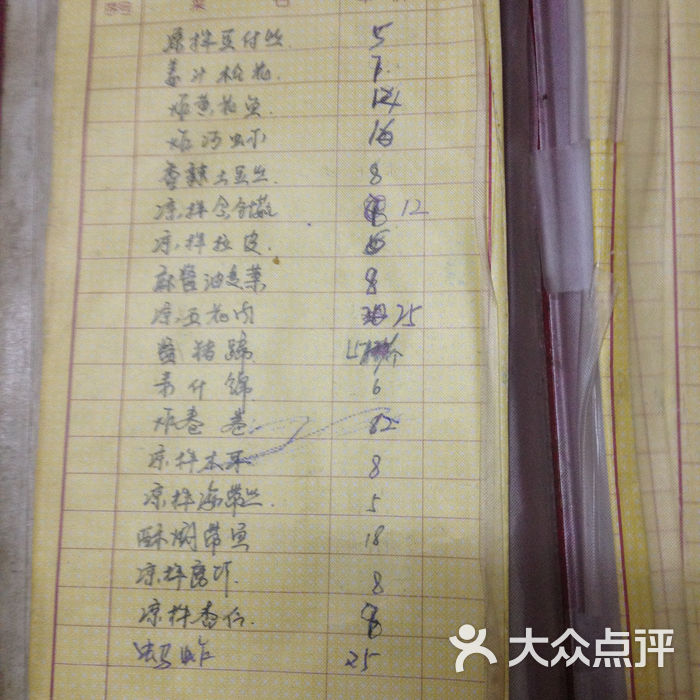 序号 菜 名 单价
凉拌豆付丝 5
姜汁松花 7
炸黄花鱼 14
炸河虾 16
香辣土豆丝 8
凉拌金针菇 12
凉拌拉皮 6
麻酱油麦菜 8
凉五花肉 25
酱猪蹄 15 个
素什锦 6
炸卷卷 12
凉拌木耳 8
凉拌海带丝 5
酥焖带鱼 18
凉拌腐竹 8
凉拌杏仁 8
蚂蚱 25
大众点评